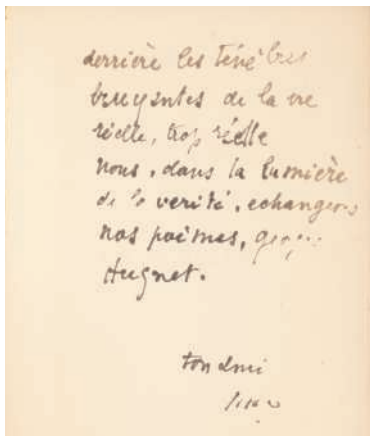 derrière les ténèbres
bruyantes de la vie
réelle, trop réelle
nous, dans la lumière
de la verité, echangeons
nos poèmes, Georges
Hugnet.
ton ami